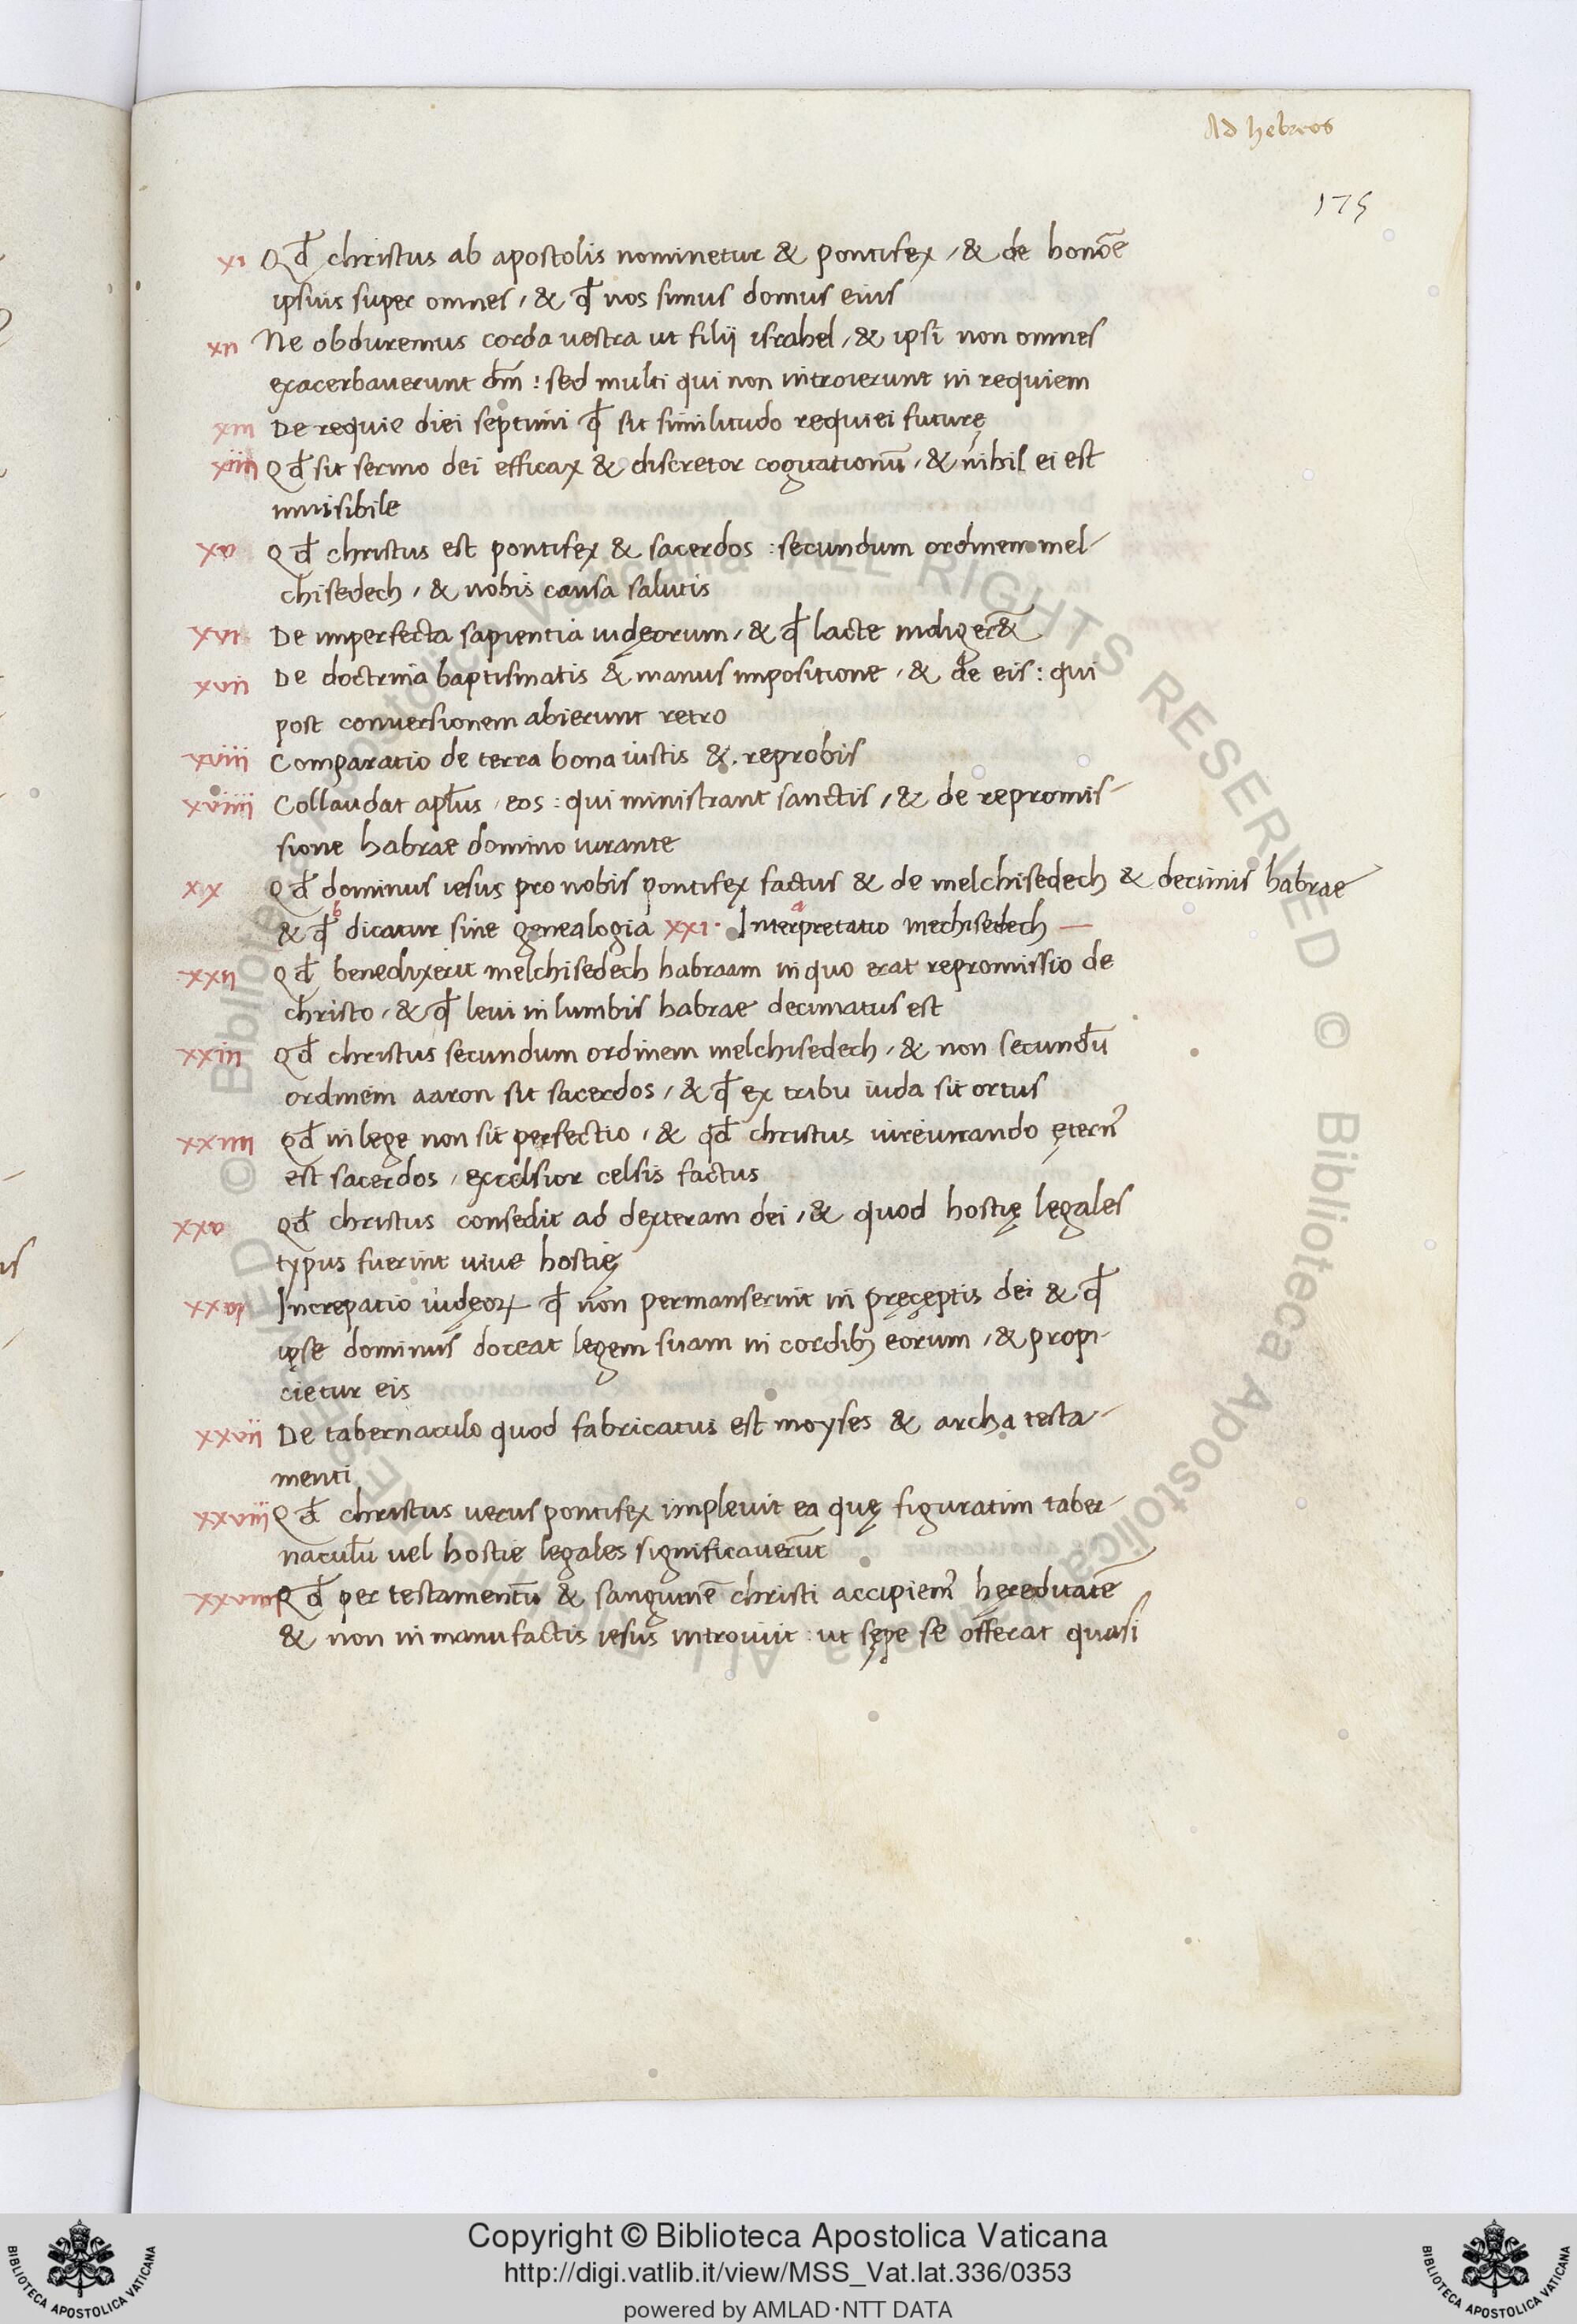 Ad hebreos
175
xi Qđ christus ab apostolis nominetur & pontifex, & de honōe
ipsius super omnes, & qđ nos simus domus eius
xii Ne obduremus corda uestra ut filij israhel, & ipsi non omnes
exacerbauerunt dn̄m: sed multi qui non introierunt in requiem
xiii De requie diei septimi qđ sit similitudo requiei futurę
xiiii Qđ sit sermo dei efficax & discretor cogitationū, & nihil ei est
inuisibile
xv Qđ christus est pontifex & sacerdos: secundum ordinem mel-
chisedech, & nobis causa salutis
xvi De imperfecta sapientia iudęorum, & qđ lacte indiger&
xvii De doctrina baptismatis & manus impositione, & de eis: qui
post conuersionem abierunt retro
xviii Comparatio de terra bona iustis &. reprobis
xviiii Collaudat apl̄us, eos: qui ministrant sanctis, & de repromis-
sione habrae domino iurante
xix Qđ dominus iesus pro nobis pontifex factus & de melchisedech & decimis habrae
b a
& qđ dicatur sine genealogia xxi. Interpretatio mechisedech —
xxii Qđ benedixerit melchisedech habraam in quo erat repromissio de
christo, & qđ leui in lumbis habrae decimatus est
xxiii Qđ christus secundum ordinem melchisedech, & non secundū
ordinem aaron sit sacerdos, & qđ ex tribu iuda sit ortus
xxiiii Qđ in lege non sit perfectio, & qđ christus iureiurando ętern᾿
est sacerdos, excelsior celsis factus
xxv Qđ christus consedit ad dexteram dei, & quod hostię legales
typus fuerint uiue hostię
xxvi Increpatio iudęoꝝ qđ non permanserint in pręcęptis dei & qđ
ipse dominus doceat legem suam in cordibꝫ eorum, & propi-
cietur eis
xxvii De tabernaculo quod fabricatus est moyses & archa testa-
menti
xxviii Qđ christus uerus pontifex impleuit ea quę figuratim taber-
naculū uel hostie legales significauerūt
xxviiii Qđ per testamentū & sanguinē christi accipiem᾿ hęreditatē
& non in manufactis iesus introiuit: ut sępe se offerat quasi
Copyright © Biblioteca Apostolica Vaticana
http://digi.vatlib.it/view/MSS_Vat.lat.336/0353
powered by AMLAD·NTT DATA